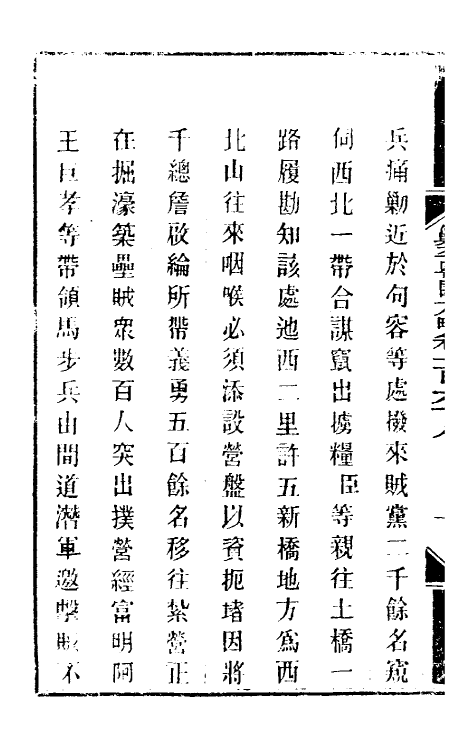 兵痛勦近於句容等處撥來賊黨二千餘名窺
伺西北一帶合謀竄出擄糧臣等親往土橋一
路履勘知該處池西二里許五新橋地方為西
北山往來咽喉必須添設營盤以資扼堵因將
千總詹啟綸所帶義勇五百餘名移往紮營正
在掘濠築壘賊眾數百人突出撲營經富明阿
王巨孝等帶領馬步兵由間道潛軍邀擊賊不